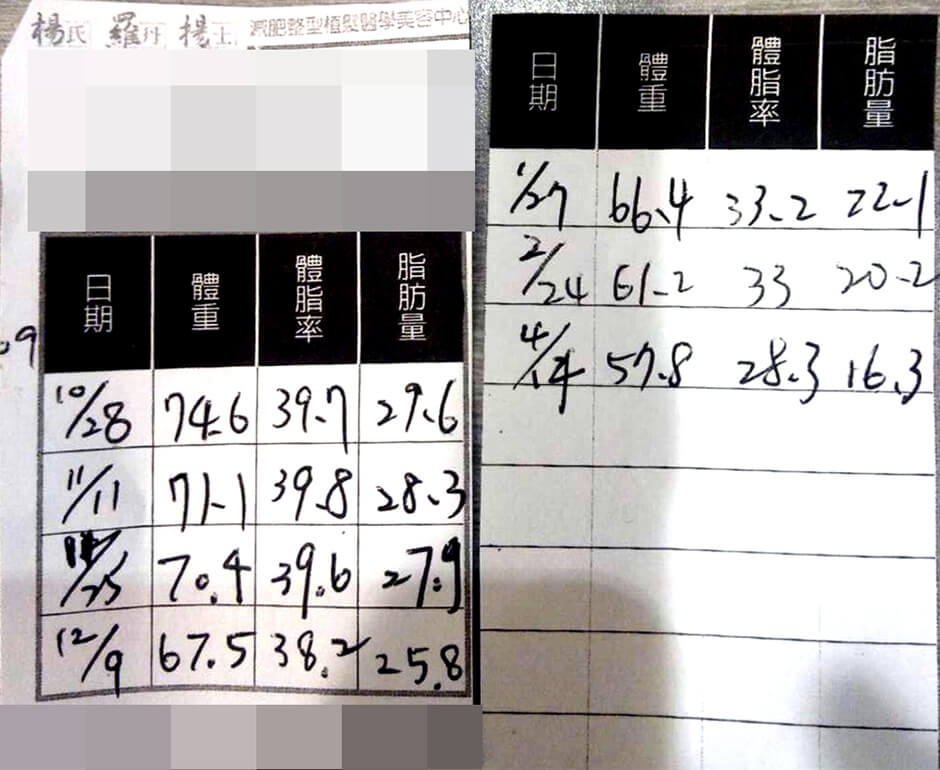 楊氏 羅丹 楊士 減肥整型植髮醫學美容中心
09
日期 體重 體脂率 脂肪量
10/28 74.6 39.7 29.6
11/11 71.1 39.8 28.3
11/25 70.4 39.6 27.9
12/9 67.5 38.2 25.8
日期 體重 體脂率 脂肪量
1/27 66.4 33.2 22.1
2/24 61.2 33 20.2
4/14 57.8 28.3 16.3